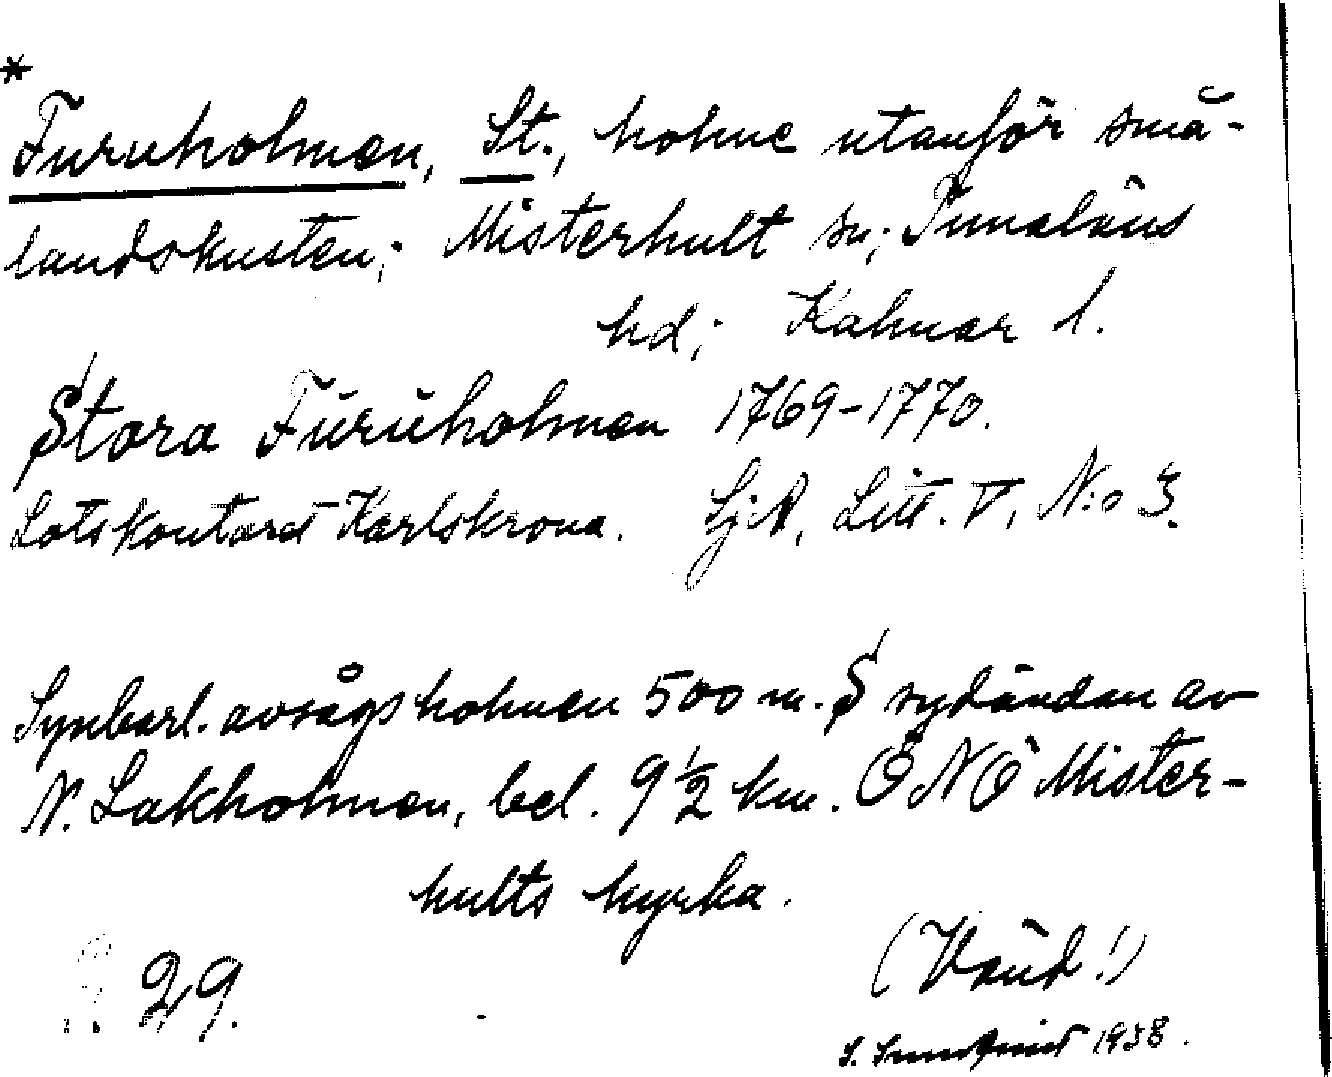 *
Furuholmen, St., holme utanför små-
landskusten; Misterhult sn; Tunaläns
hd; Kalmar l.
Stora Furuholmen 1769-1770.
Lotskontoret Karlskrona. Sj.A, Litt. V, N:o 3.
Synbarl. avsågs holmen 500 m. S sydändan av
N. Lakholmen, bel. 9 1/2 km. ÖNÖ Mister-
hults kyrka.
29.
(Vänd!)
S. 1938.